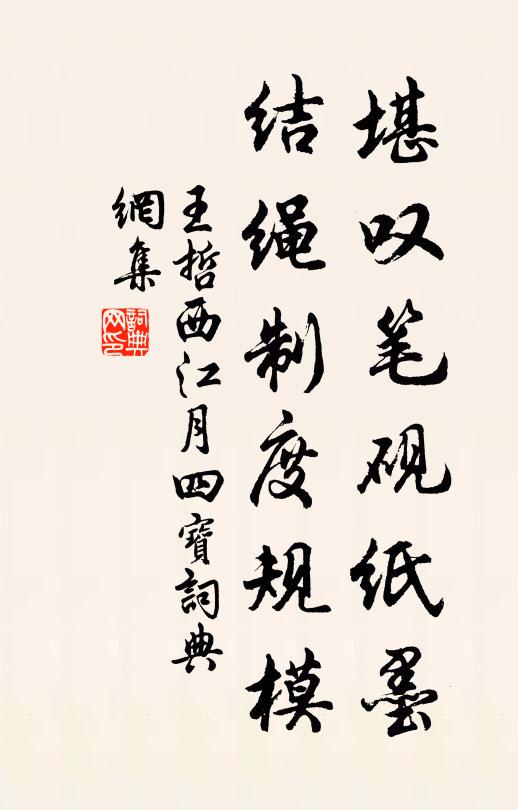 堪叹笔砚纸墨
结绳制度规模
王哲西江月四寳词典
網集
詞典
网印